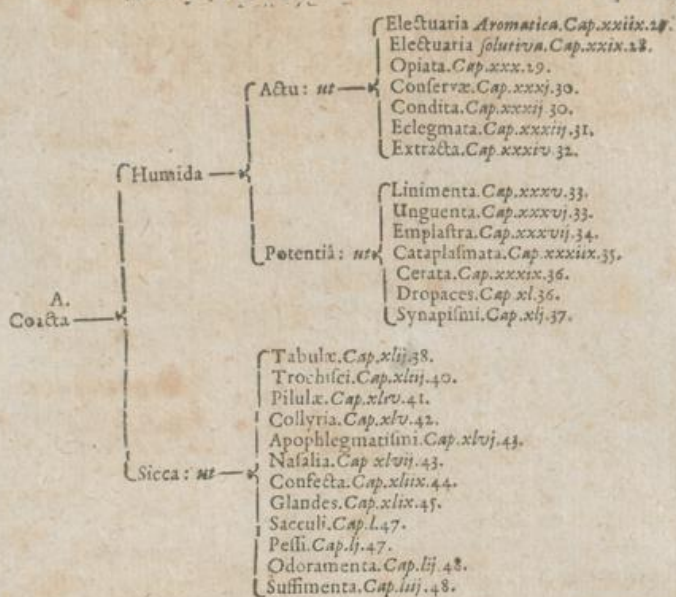 Electuaria Aromatica. Cap. xxiix. 27.
Electuaria ſolutiva. Cap. xxix. 28.
Opiata. Cap. xxx. 29.
Actu: ut
Conſervæ. Cap. xxxj. 30.
Condita. Cap. xxxij 30.
Eclegmata. Cap. xxxiij. 31.
Extracta. Cap. xxxiv. 32.
Humida
Linimenta. Cap. xxxv. 33.
Unguenta. Cap. xxxvj. 33.
Emplaſtra. Cap. xxxvij. 34.
Potentiâ: ut
Cataplaſmata. Cap. xxxiix. 35.
Cerata. Cap. xxxix. 36.
Dropaces. Cap. xl. 36.
Synapiſmi. Cap. xlj. 37.
A.
Coacta
Tabulæ. Cap. xlij. 38.
Trochiſci. Cap. xliij. 40.
Pilulæ. Cap. xliv. 41.
Collyria. Cap. xlv. 42.
Apophlegmatiſmi. Cap. xlvj. 43.
Naſalia. Cap xlvij. 43.
Sicca: ut
Confecta. Cap. xliix. 44.
Glandes. Cap. xlix. 45.
Sacculi. Cap. l. 47.
Peſſi. Cap. lj. 47.
Odoramenta. Cap. lij. 48.
Suffimenta. Cap. liij. 48.